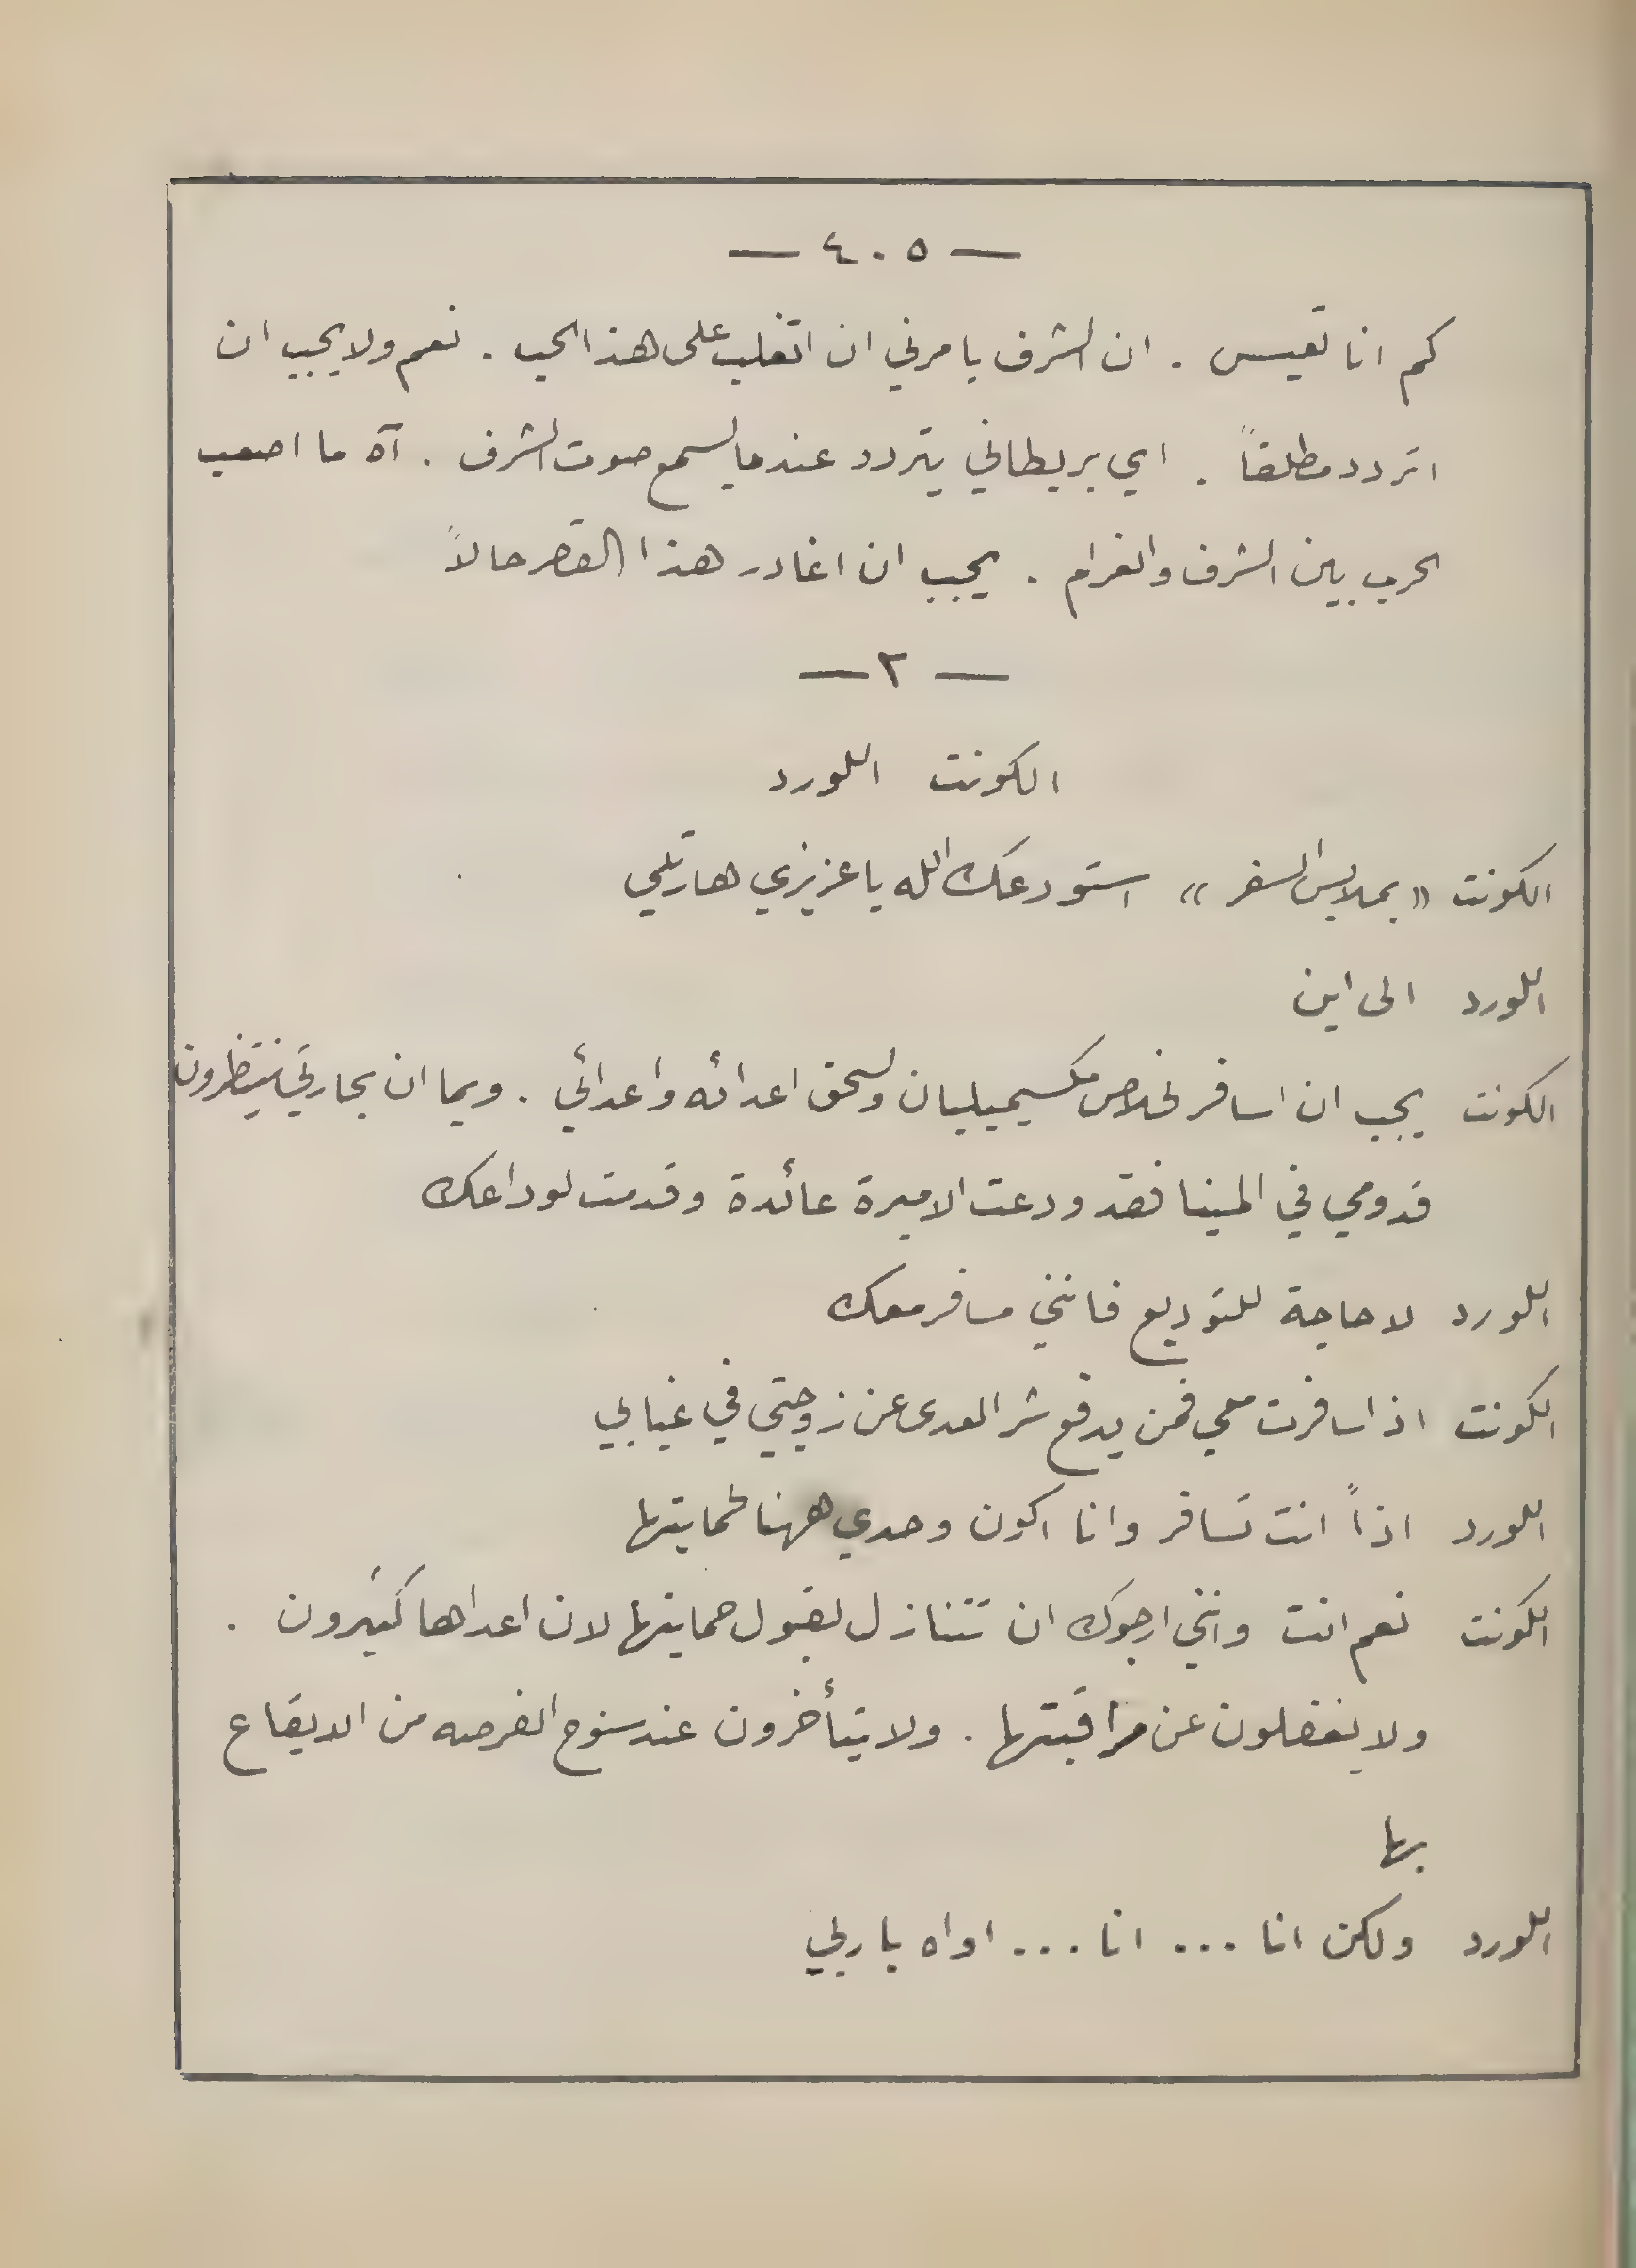 — ٤٠٥ —
كم انا تعيس . ان الشرف يامرني ان اتغلب على هذا الحب . نعم ولا يجب ان
اتردد مطلقاً . اي بريطاني يتردد عندما يسمع صوت الشرف . آه ما اصعب
الحرب بين الشرف والغرام . يجب ان اغادر هذا القصر حالاً
— ٢ —
الكونت اللورد
الكونت «بملابس السفر» استودعك الله يا عزيزي هارتلي
اللورد الى اين
الكونت يجب ان اسافر لخلاص مكسيميليان ولسحق اعدائه واعدائي . وبما ان بحارتي ينتظرون
قدومي في المينا فقد ودعت الاميرة عائدة وقدمت لوداعك
اللورد لا حاجة للتوديع فانني مسافر معك
الكونت اذا سافرت معي فمن يدفع شر العدى عن زوجتي في غيابي
اللورد اذاً انت تسافر وانا اكون وحدي ههنا لحمايتها
الكونت نعم انت وانني ارجوك ان تتنازل لقبول حمايتها لان اعداها كثيرون .
ولا يغفلون عن مراقبتها . ولا يتأخرون عند سنوح الفرصه من الايقاع
بها
اللورد ولكن انا ... انا ... اواه ياربي